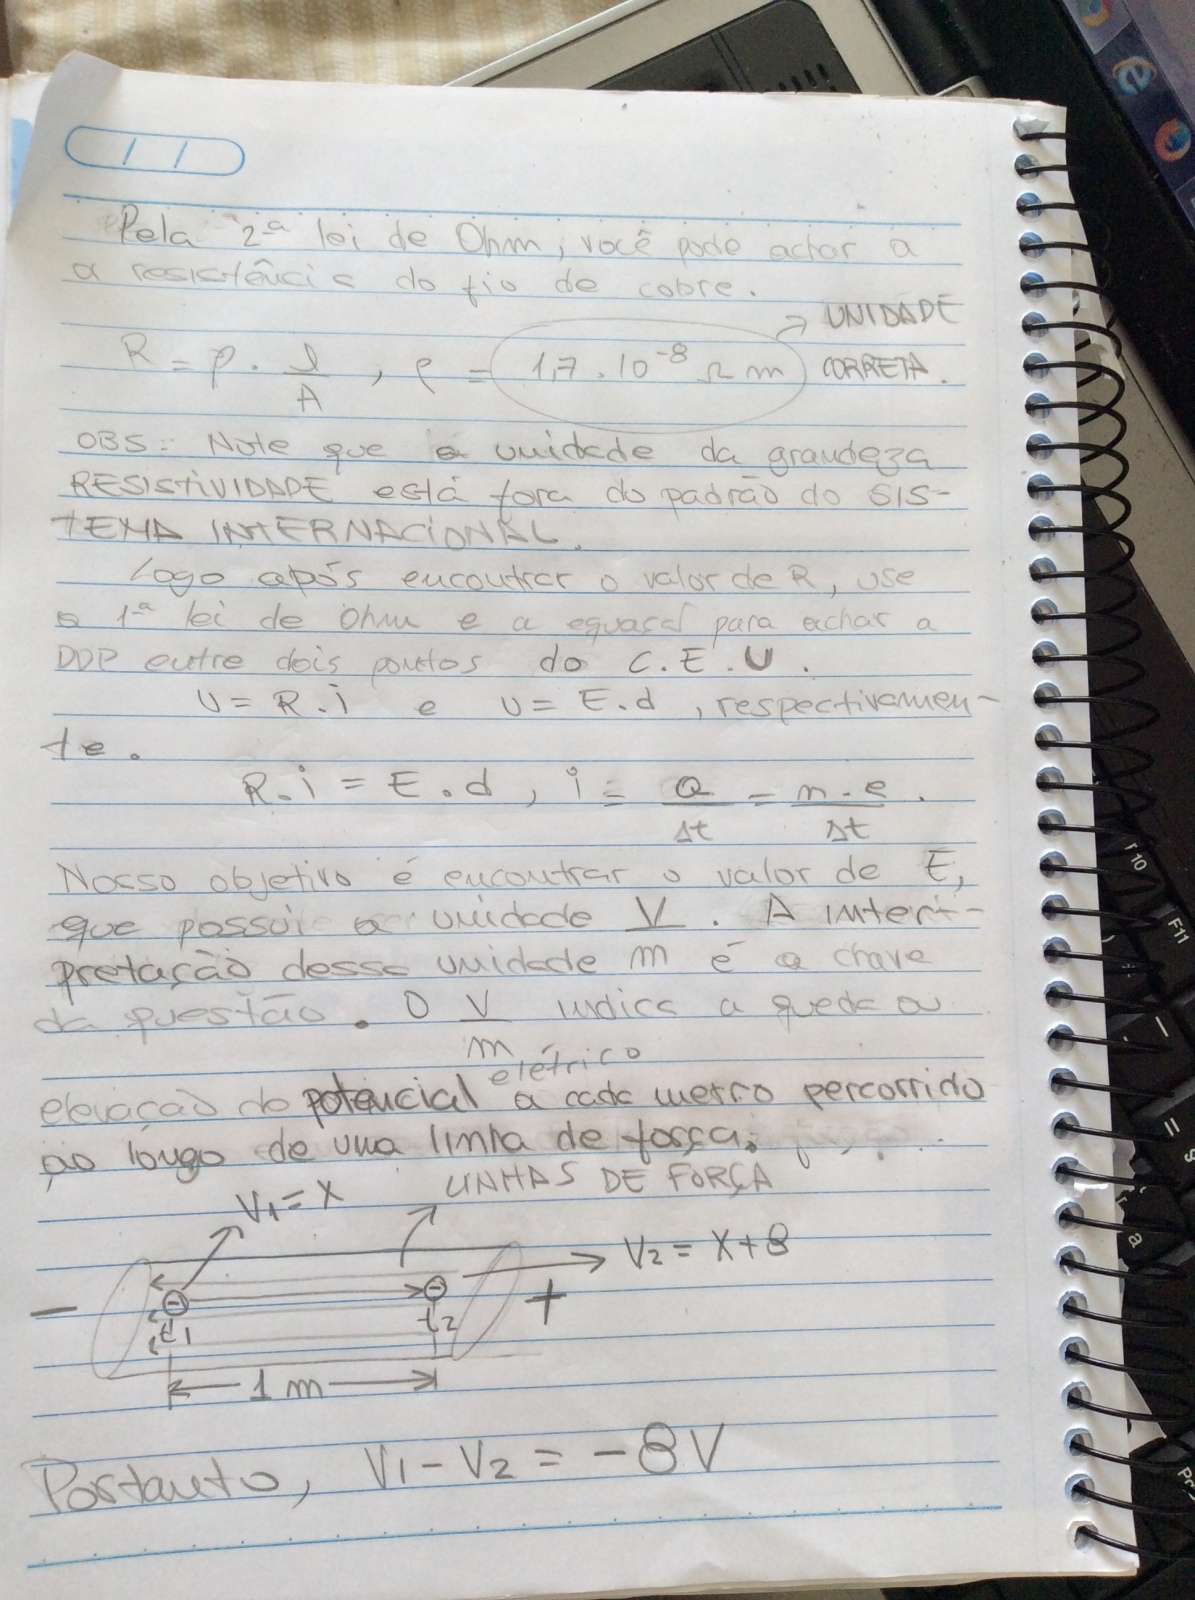 Pela 2ª lei de Ohm, você pode achar a
a resistência do fio de cobre.
R = ρ . l/A , ρ = 1,7 . 10⁻⁸ Ω m → UNIDADE
CORRETA.
OBS: Note que a unidade da grandeza
RESISTIVIDADE está fora do padrão do SIS-
TEMA INTERNACIONAL.
Logo após encontrar o valor de R, use
a 1ª lei de Ohm e a para achar a
DDP entre dois pontos do C.E.U.
U = R.i e U = E.d, respectivamen-
te.
R.i = E.d, i = Q/Δt = n.e/Δt.
Nosso objetivo é encontrar o valor de E,
que possui a unidade V/m. A inter-
pretação dessa unidade é a chave
da questão. O V/m indica a queda ou
elevação do potencial elétrico a cada metro percorrido
ao longo de uma linha de força.
V1 = X
LINHAS DE FORÇA
V2 = X+8
− − − +
t1
t2
1 m
Portanto, V1 − V2 = −8V
F10
F11